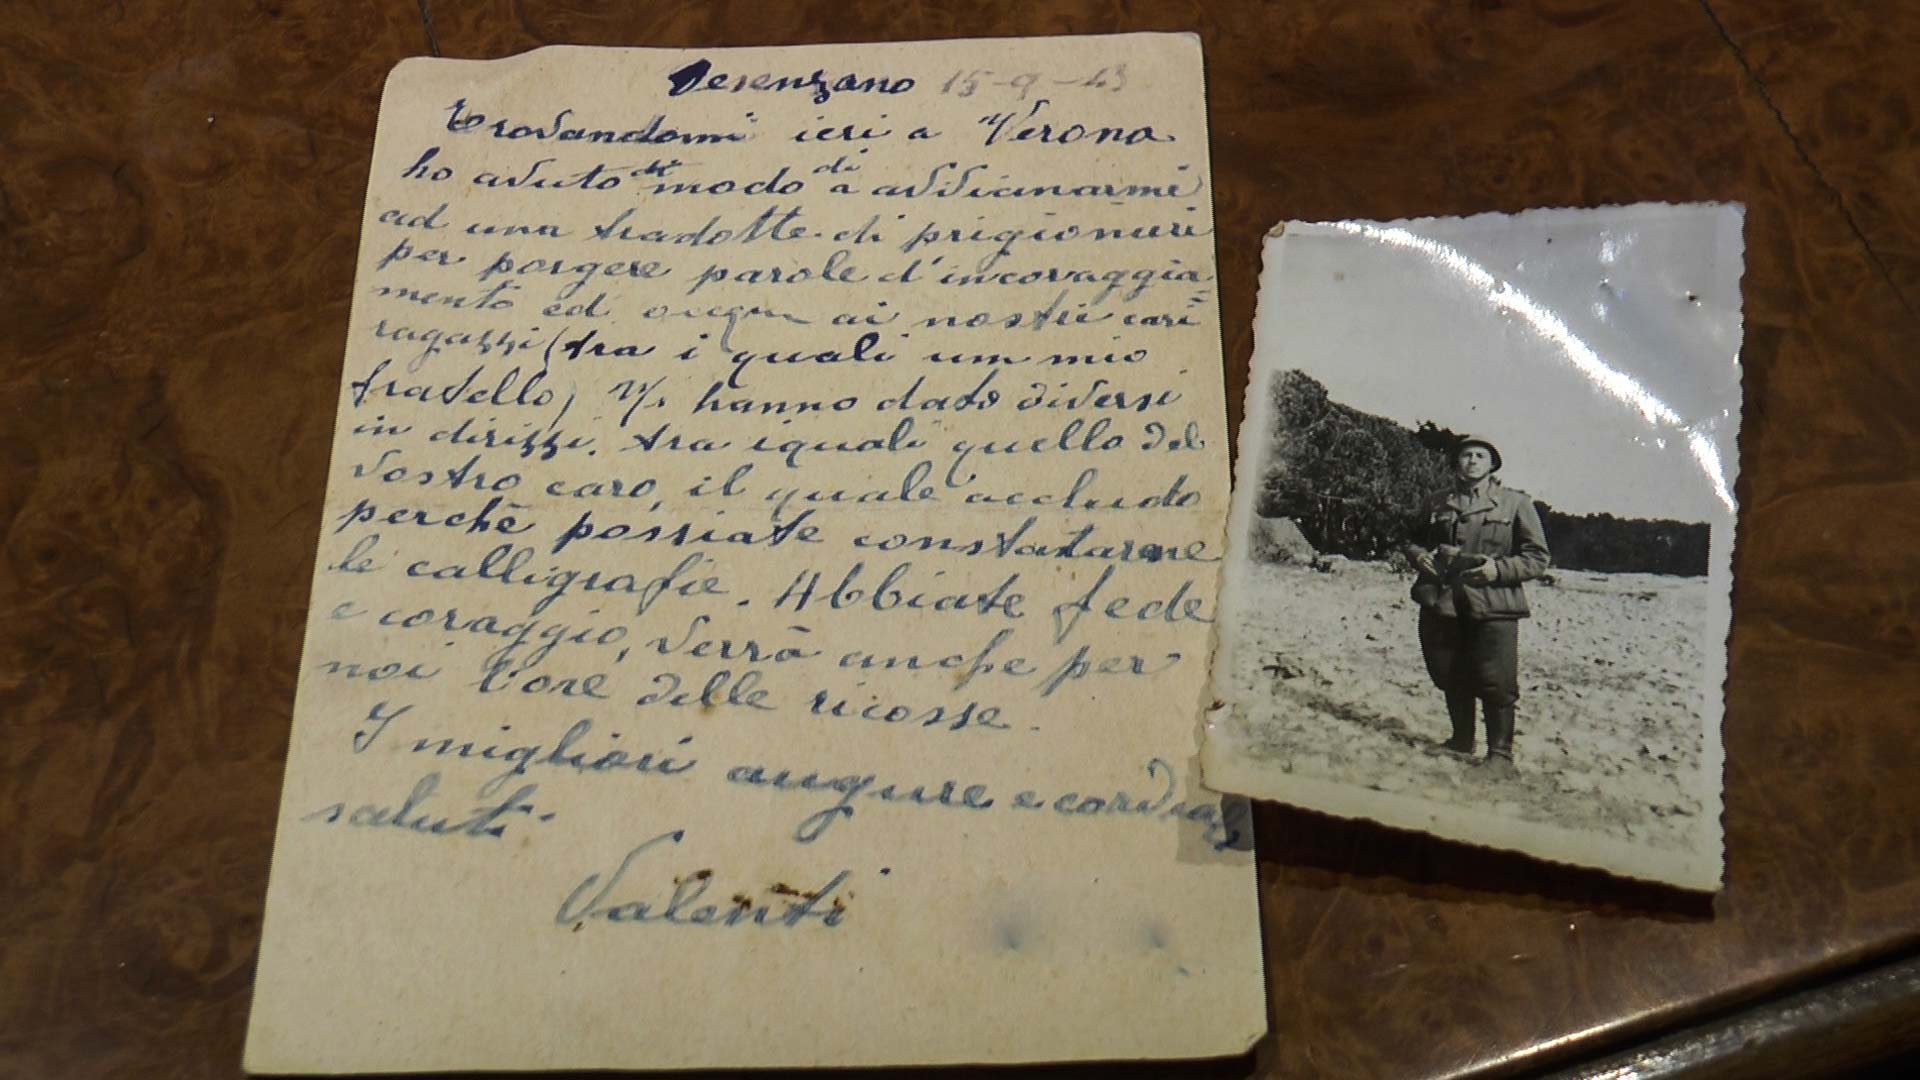 Desenzano 15-9-43
Trovandomi ieri a Verona
ho avuto modo di avvicinarmi
ad una tradotta di prigionieri
per porgere parole d'incoraggia=
mento ed ai nostri cari
ragazzi (tra i quali um mio
fratello) Mi hanno dato diversi
in dirizzi. tra i quali quello del
Vostro caro, il quale accludo
perchè possiate constatarne
le calligrafie. Abbiate fede
e coraggio, verrà anche per
noi l'ora delle ricosse.
I migliori augure e cordiali
saluti.
Valenti